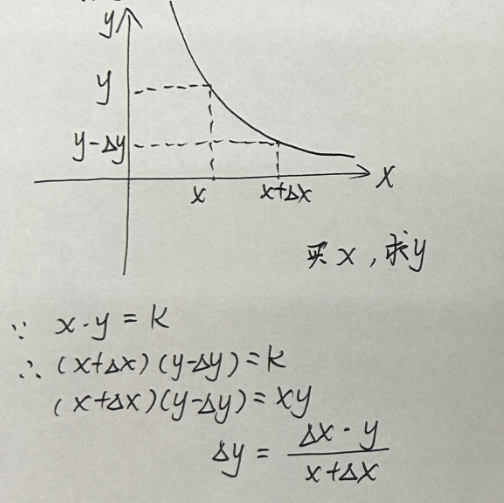 y
y
y-Δy
x
x+Δx
X
买 x , 求 y
∵ x·y = K
∴ (x+Δx) (y-Δy) = K
(x+Δx)(y-Δy) = xy
Δy = Δx · y / x+Δx